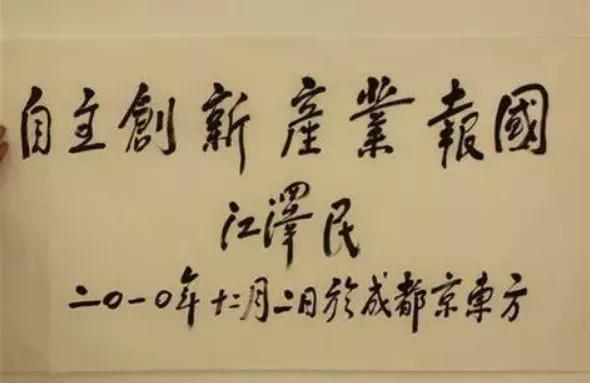 自主創新產業報國
江澤民
二〇一〇年十二月二日於成都京東方